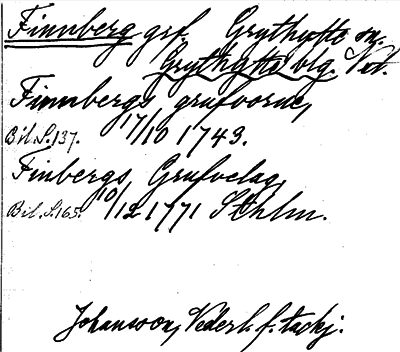 Finnberg grf. Grythytte sn.
Grythytte vlg. Vstl.
Finnbergs grufvorne,
Bil. S. 137. 17/10 1743.
Finbergs Grufvelag,
Bil. S. 165. 10/12 1771 Sthlm.
Johansson, Nederl. f. tackj.